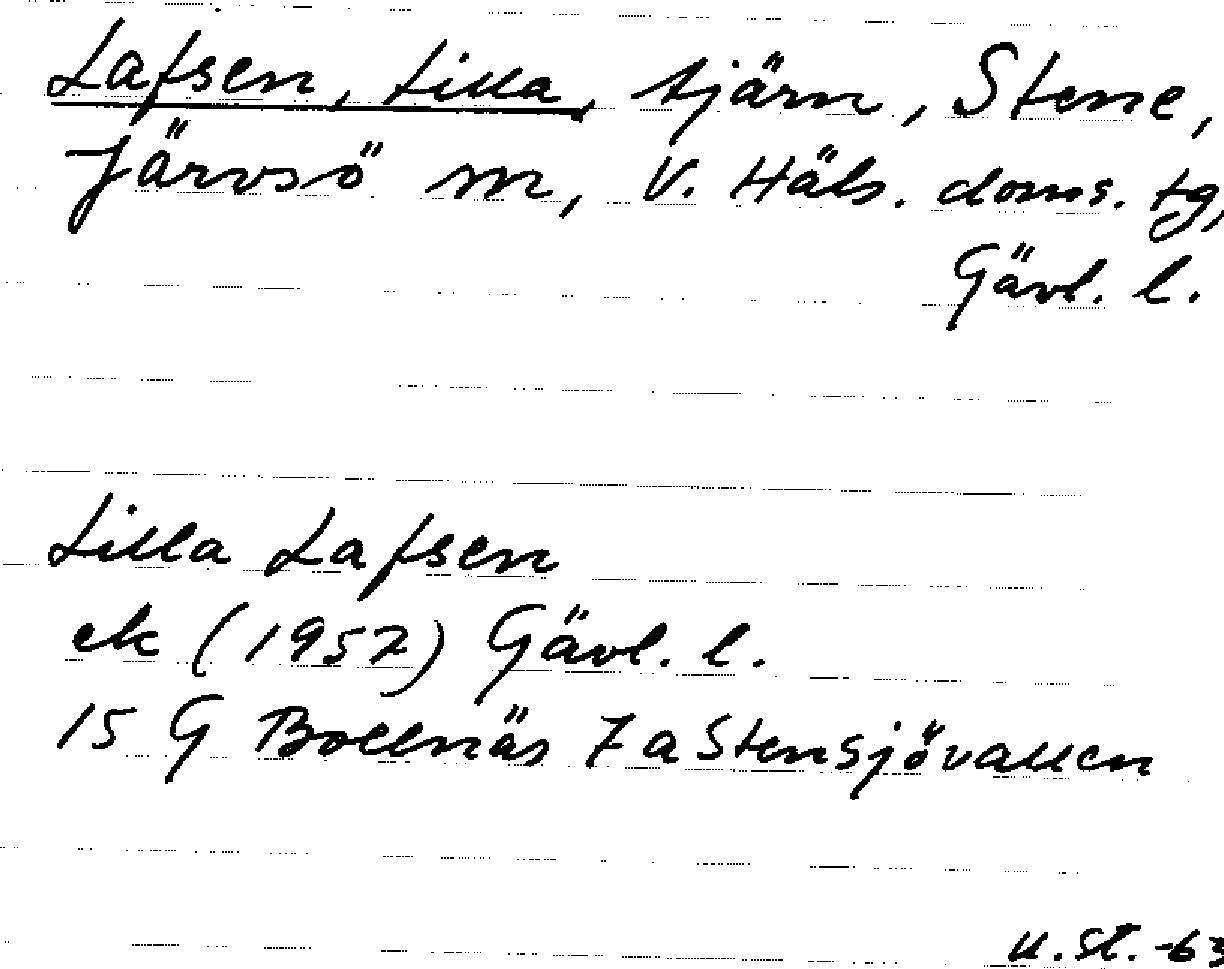 Lafsen, Lilla, tjärn, Stene,
Järvsö sn, V. Häls. doms. tg,
Gävl. l.
Lilla Lafsen
ek (1957) Gävl. l.
15 G Bollnäs 7a Stensjövallen
U. St. -63